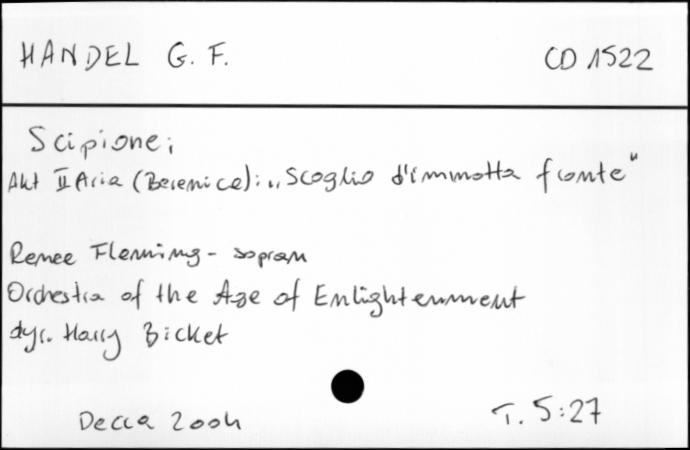 HANDEL G. F. CD 1522
Scipione;
Akt II Aria (Berenice): „Scoglio d'immotta fronte"
Renee Fleming - sopran
Orchestra of the Age of Enlightenment
dyr. Harry Bicket
Decca 2004 T. 5:27